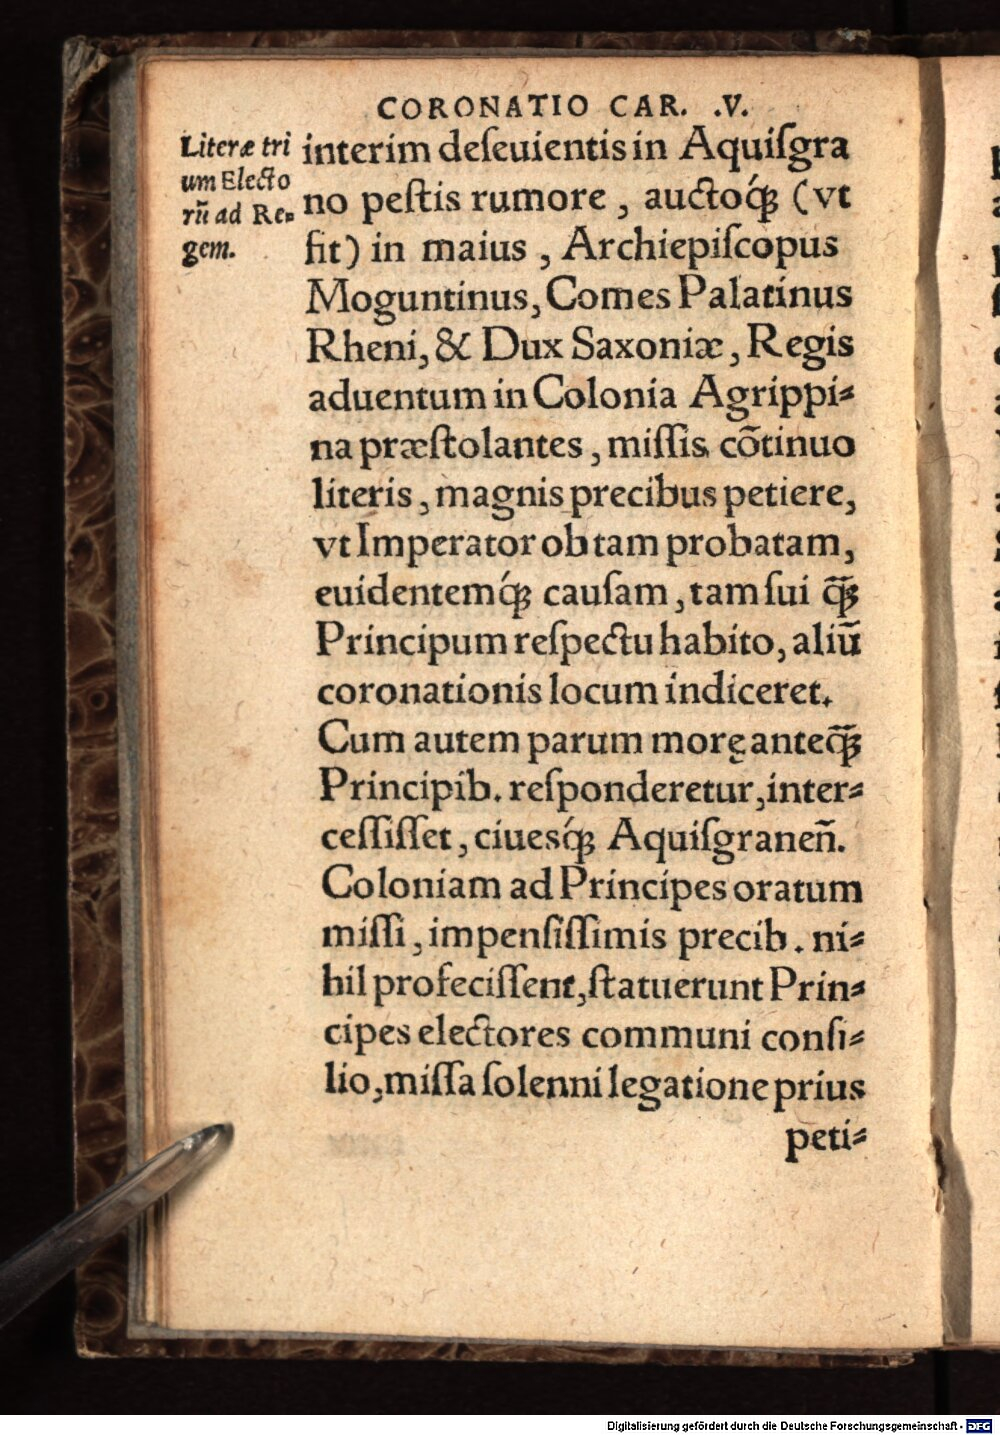 CORONATIO CAR. .V.
Literæ tri
um Electo
rũ ad Re⸗
gem.
interim deſeuientis in Aquiſgra
no peſtis rumore, auctoq́ꝫ (vt
fit) in maius, Archiepiſcopus
Moguntinus, Comes Palatinus
Rheni, & Dux Saxoniæ, Regis
aduentum in Colonia Agrippi⸗
na præſtolantes, miſſis cõtinuo
literis, magnis precibus petiere,
vt Imperator ob tam probatam,
euidentemq́ꝫ cauſam, tam ſui q̃ꝫ
Principum reſpectu habito, aliũ
coronationis locum indiceret.
Cum autem parum morę anteq̃ꝫ
Principib. reſponderetur, inter⸗
ceſſiſſet, ciuesq́ꝫ Aquiſgraneñ.
Coloniam ad Principes oratum
miſſi, impenſiſſimis precib. ni⸗
hil profeciſſent, ſtatuerunt Prin⸗
cipes electores communi conſi⸗
lio, miſſa ſolenni legatione prius
peti⸗
Digitalisierung gefördert durch die Deutsche Forschungsgemeinschaft - DFG